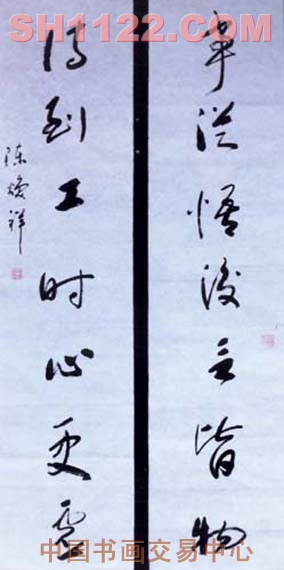 SH1122.COM
事從悟後言皆物
詩到工时心更虚
陈焕祥
中国书画交易中心